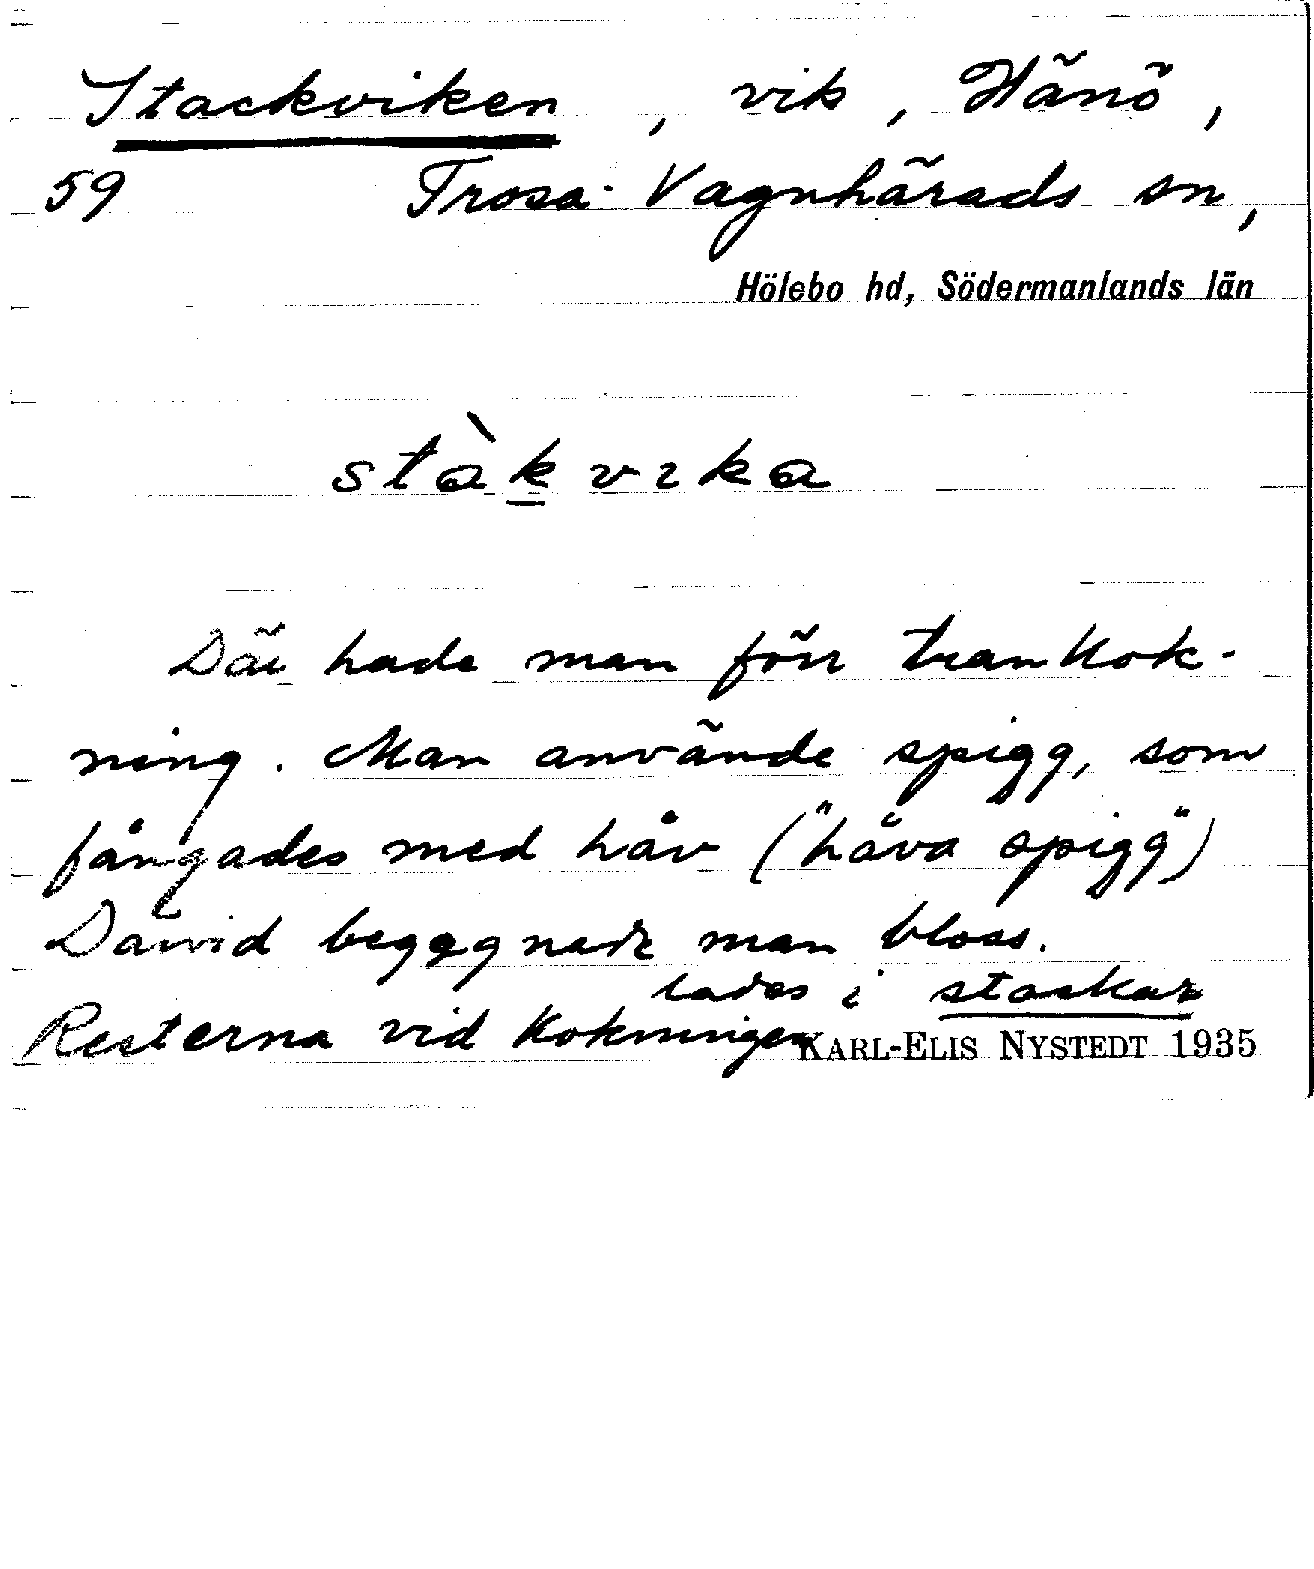 Stackviken, vik, Hånö,
59 Trosa-Vagnhärads sn,
Hölebo hd, Södermanlands län
stàkvika
Där hade man förr trankok-
ning. Man använde spigg, som
fångades med håv ("håva spigg")
Därvid begagnade man bloss.
lades i stackar
Resterna vid kokningen
KARL-ELIS NYSTEDT 1935